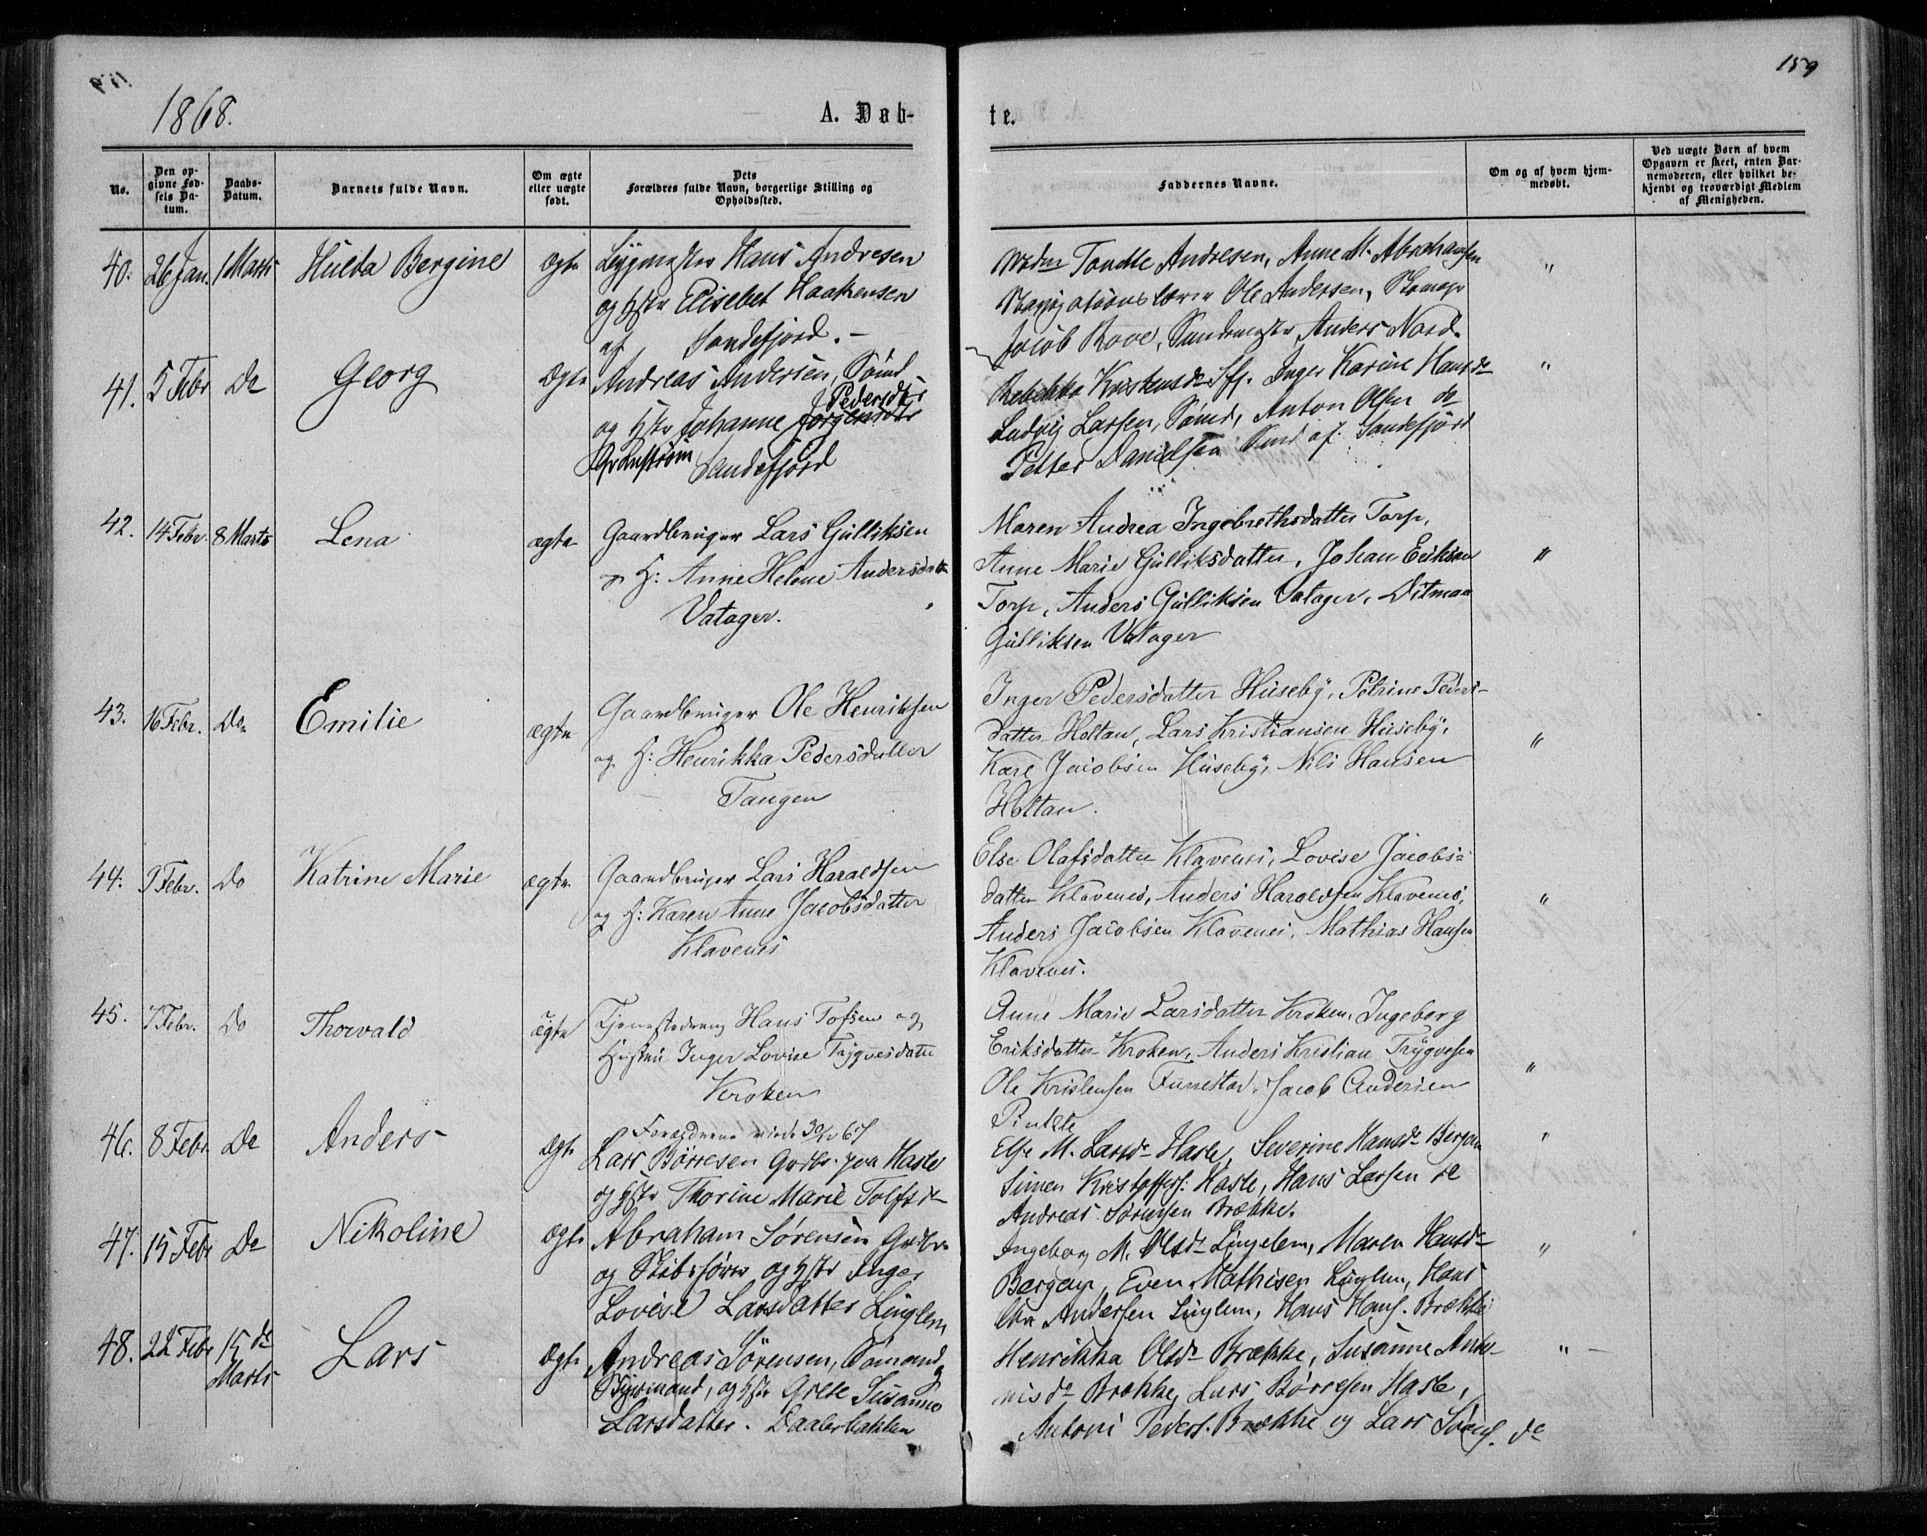 159
1868.
A. Døb-
te.
No.
Den op-
givne Fød-
sels Da-
tum.
Daabs-
Datum.
Barnets fulde Navn.
Om ægte
eller uægte
født.
Dets
Forældres fulde Navn, borgerlige Stilling og
Opholdssted.
Faddernes Navne.
Om og af hvem hjem-
medøbt.
Ved uægte Børn af hvem
Opgaven er skeet, enten Bar-
nemoderen, eller hvilket be-
kjendt og troværdigt Medlem
af Menigheden.
40. 26 Jan. 1 Marts Hulda Bergine ægte Hans Andresen
og Hstr Elisebet Haakensen
af Sandefjord.
Andresen, Anne M. Abrahamsen
Ole Andersen,
Jacob Rove, Anders Nord.
"
41. 5 Febr Do Georg Ægte Andreas Andersen, Sømd
Pedersdtr
og Hstr Johanne Jørgensdtr
Sandefjord
Rebekka Kristensdr Sfj. Inger Karine Hansdr
Ludvig Larsen, Sømd, Anton Olsen do
Petter Danielsen Sømd af Sandefjord
"
42. 14 Febr. 8 Marts Lena ægte Gaardbruger Lars Gulliksen
og H: Anne Helene Andersdatter
Vatager.
Maren Andrea Ingebrethsdatter Torp,
Anne Marie Gulliksdatter, Johan Eriksen
Torp, Anders Gulliksen Vatager, Ditman
Gulliksen Vatager
"
43. 16 Febr. Do. Emilie ægte Gaardbruger Ole Henriksen
og H: Henrikka Pedersdatter
Tangen
Inger Pedersdatter Huseby, Petrine Peders-
datter Holtan, Lars Kristiansen Huseby,
Karl Jacobsen Huseby, Nils Hansen
Holtan.
"
44. 9 Febr. Do Katrine Marie ægte Gaardbruger Lars Haraldsen
og H: Karen Anne Jacobsdatter
Klavenes
Else Olafsdatter Klavenes, Lovise Jacobs-
datter Klavenes, Anders Haraldsen Klavenes,
Anders Jacobsen Klavenes, Mathias Hansen
Klavenes.
"
45. 7 Febr. Do Thorvald ægte Tjenestedreng Hans Tofsen og
Hustru Inger Lovise Trygvesdatter
Kroken
Forældrene viede
Anne Marie Larsdatter Kroken, Ingeborg
Eriksdatter Kroken, Anders Kristian Trygvesen
Ole Kristensen Jacob Andersen
"
46. 8 Febr Do Anders Ægte Lars Børresen Grdbr. paa Hasle
og Hstr Thorine Marie Tolfsdr
Else M. Larsdr Hasle, Severine Hansdr Bergan
Simen Kristoffers. Hasle, Hans Larsen do
Andreas Sørensen Brække.
"
47. 15 Febr Do Nikoline Ægte Abraham Sørensen Grdbr
og Skibsfører og Hstr Inger
Lovise Larsdatter Linglem
Ingeborg M. Olsdr Linglem, Maren Hansdr
Bergan, Even Mathisen Linglem, Hans
Chr Andersen Linglem, Hans Hans. Brække
"
48. 22 Febr 15de
Marts Lars Ægte Andreas Sørensen, Sømand,
Styrmand, og Hstr Grete Susanne
Larsdatter. Daalerbakken
Henrikka Olsdr Brække, Susanne Anto-
nisdr Brække, Lars Børresen Hasle,
Antoni Peders. Brække og Lars Søens. do
"